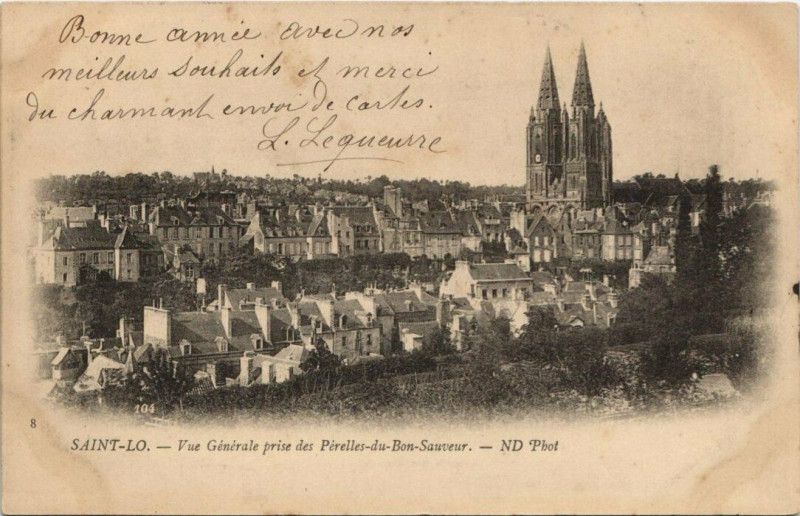 Bonne année avec nos
meilleurs souhaits et merci
du charmant envoi de cartes.
L. Lequeurre
104
8
SAINT-LO. — Vue Générale prise des Pérelles-du-Bon-Sauveur. — ND Phot